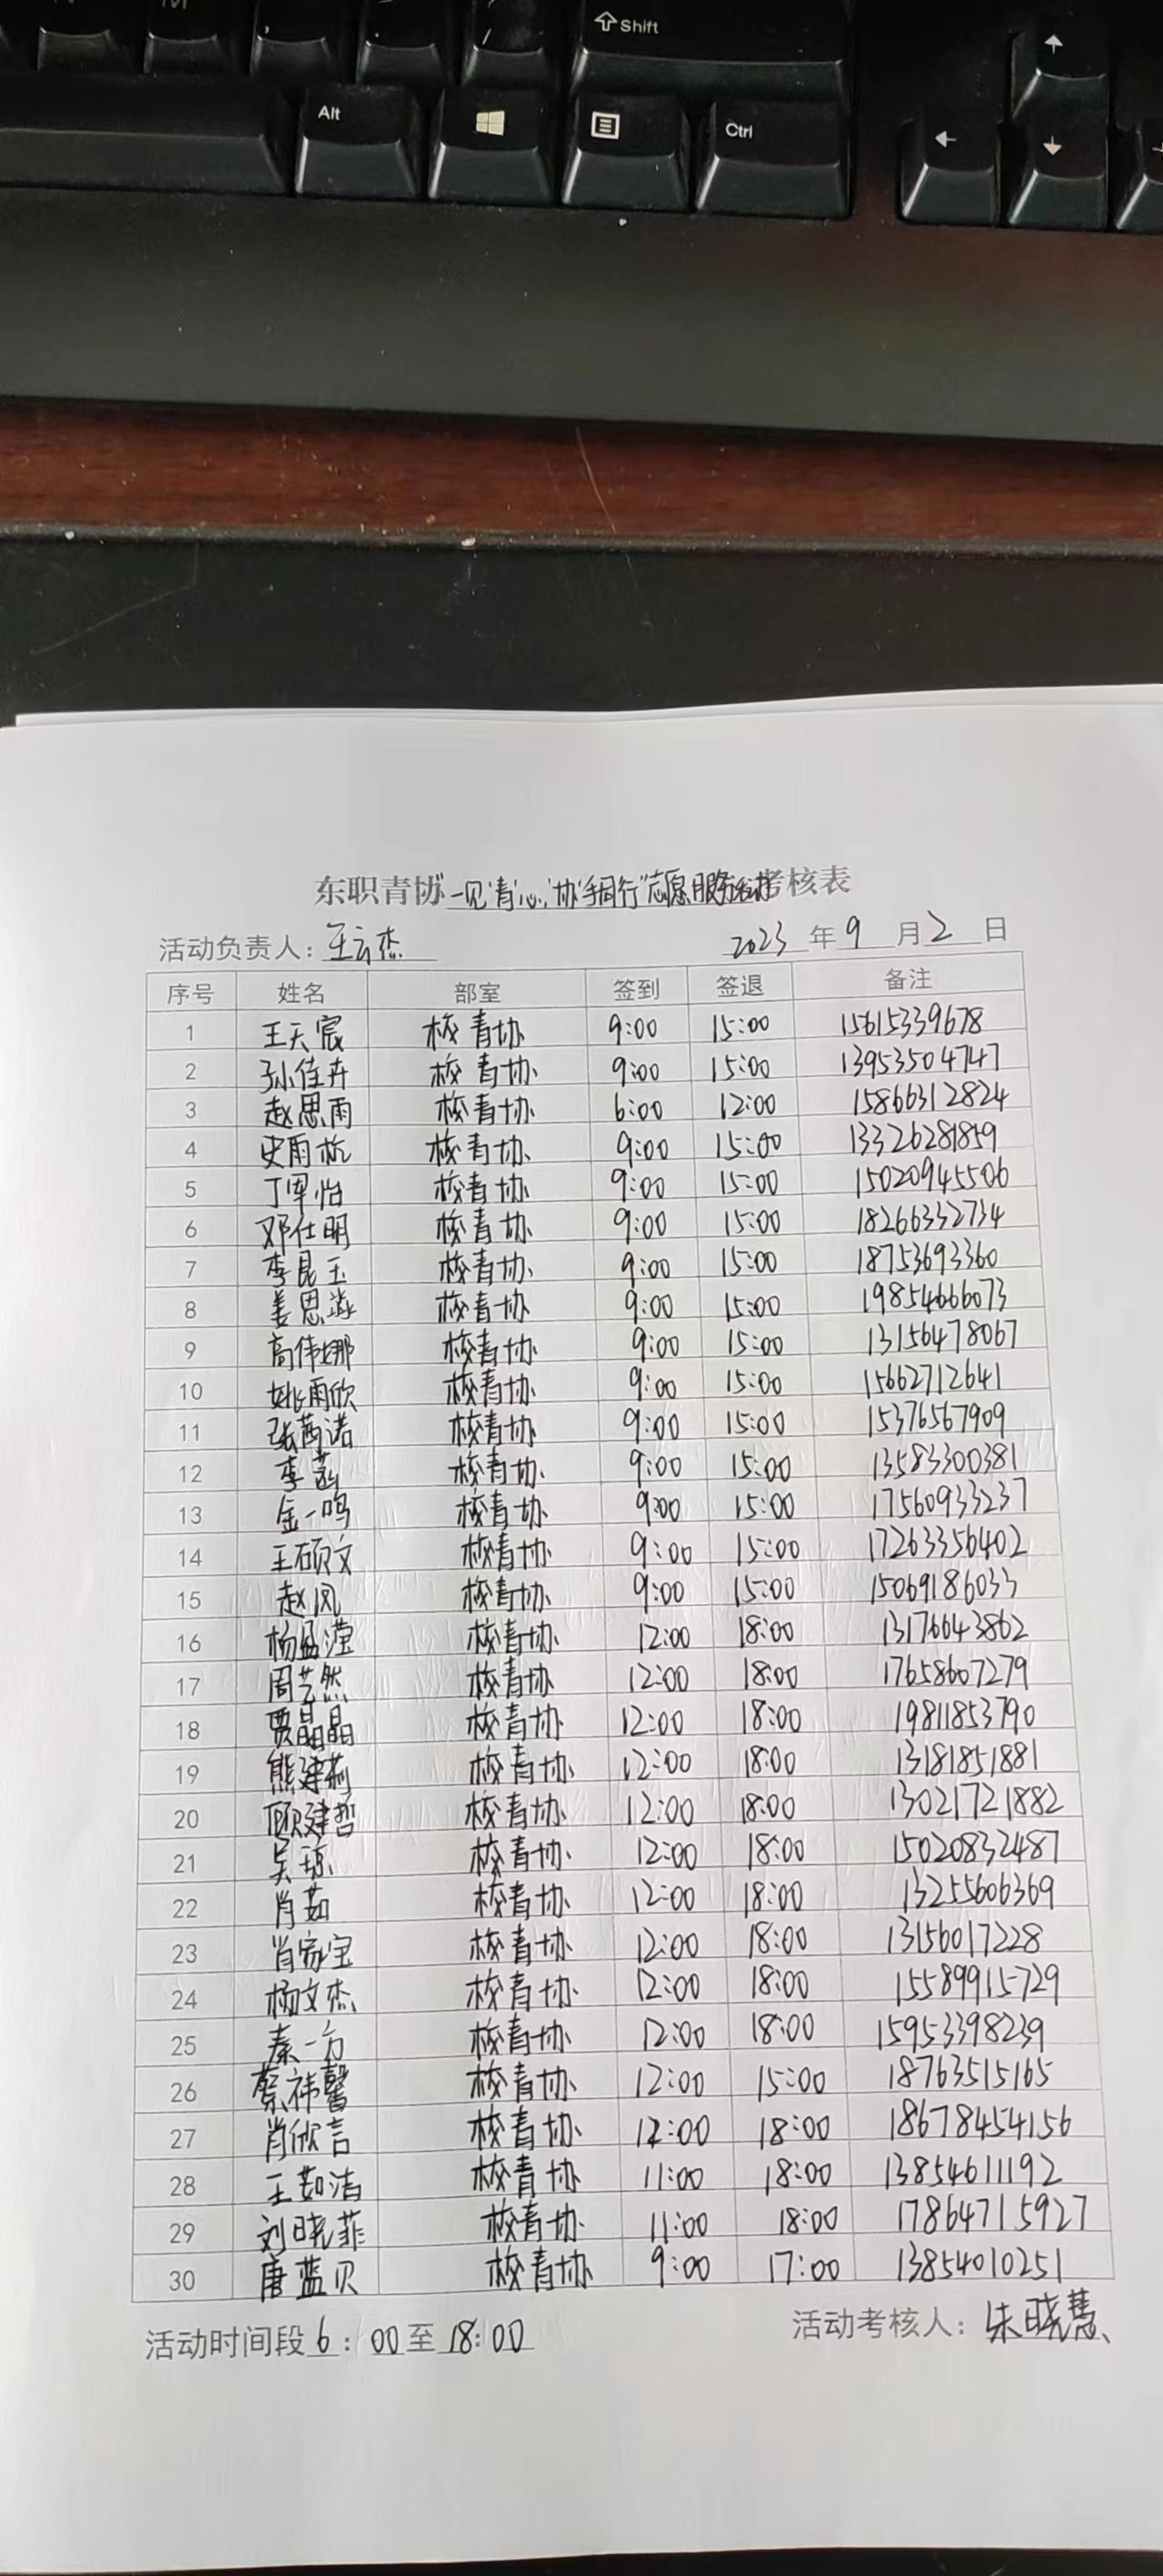 Shift
Alt
Ctrl
东职青协"一见'青'心,'协'手同行"志愿服务活动考核表
活动负责人：王云杰 2023年9月2日
序号 姓名 部室 签到 签退 备注
1 王天宸 校青协 9:00 15:00 15615339678
2 孙佳卉 校青协 9:00 15:00 13953504747
3 赵思雨 校青协 6:00 12:00 15866312824
4 史雨杭 校青协 9:00 15:00 13326281859
5 丁军怡 校青协 9:00 15:00 15020945506
6 邓仕明 校青协 9:00 15:00 18266332734
7 李昆玉 校青协 9:00 15:00 18753693360
8 姜思 校青协 9:00 15:00 19854666073
9 高伟娜 校青协 9:00 15:00 13156478067
10 姚雨欣 校青协 9:00 15:00 15662712641
11 张茜诺 校青协 9:00 15:00 15376567909
12 李菡 校青协 9:00 15:00 13583300381
13 金一鸣 校青协 9:00 15:00 17560933237
14 王硕文 校青协 9:00 15:00 17263356402
15 赵凤 校青协 9:00 15:00 15069186033
16 杨盈滢 校青协 12:00 18:00 13176643862
17 周艺然 校青协 12:00 18:00 17658607279
18 贾晶晶 校青协 12:00 18:00 19811853790
19 熊建莉 校青协 12:00 18:00 13181851881
20 顾建哲 校青协 12:00 18:00 13021721882
21 吴琼 校青协 12:00 18:00 15020832487
22 肖茹 校青协 12:00 18:00 13255606369
23 肖家宝 校青协 12:00 18:00 13156017228
24 杨文杰 校青协 12:00 18:00 15589915729
25 秦一方 校青协 12:00 18:00 15953398239
26 蔡祎馨 校青协 12:00 15:00 18763515165
27 肖欣言 校青协 12:00 18:00 18678454156
28 王茹洁 校青协 11:00 18:00 13854611192
29 刘晓菲 校青协 11:00 18:00 17864715927
30 唐蓝贝 校青协 9:00 17:00 13854010251
活动时间段6：00至18:00 活动考核人：朱晓慧